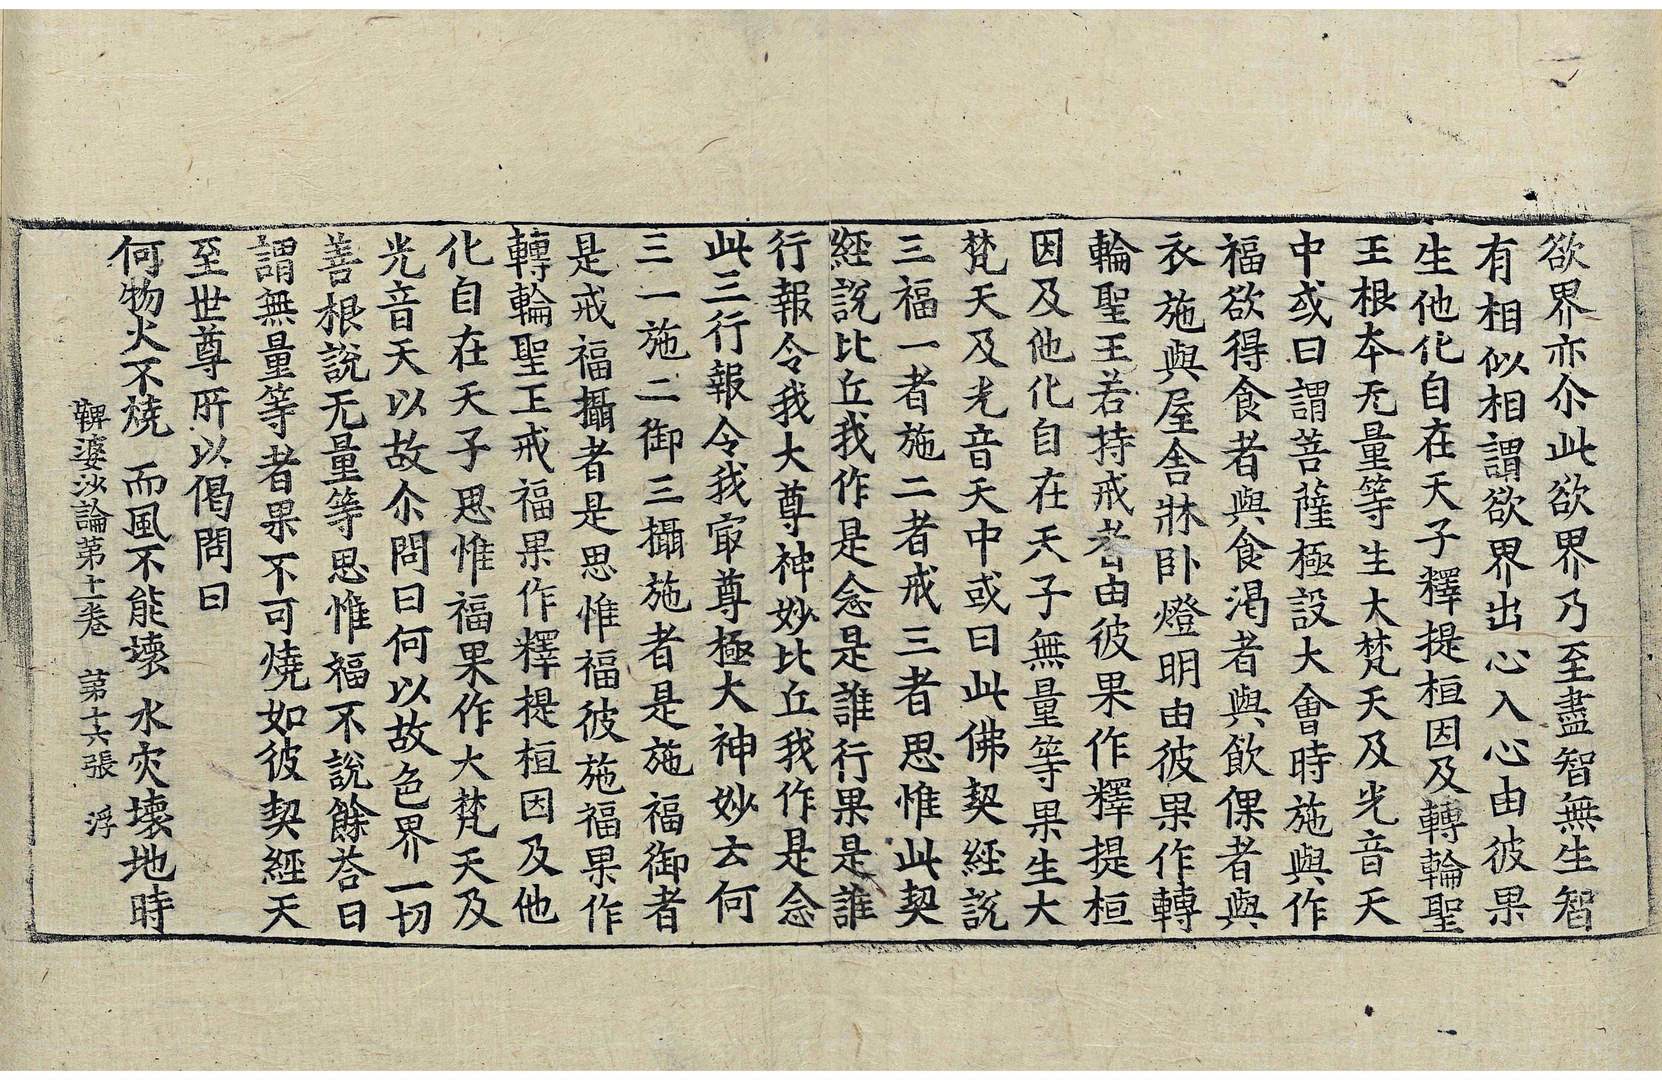 欲界亦尒此欲界乃至盡智無生智
有相似相謂欲界出心入心由彼果
生他化自在天子釋提桓因及轉輪聖
王根夲无量等生大梵天及光音天
中或曰謂菩薩極設大會時施與作
福欲得食者與食渴者與飲倮者與
衣施與屋舍牀卧燈明由彼果作轉
輪聖王若持戒者由彼果作釋提桓
因及他化自在天子無量等果生大
梵天及光音天中或曰此佛契經說
三福一者施二者戒三者思惟此契
經說比丘我作是念是誰行果是誰
行報令我大尊神妙比丘我作是念
此三行報令我㝡尊極大神妙云何
三一施二御三攝施者是施福御者
是戒福攝者是思惟福彼施福果作
轉輪聖王戒福果作釋提桓因及他
化自在天子思惟福果作大梵天及
光音天以故尒問曰何以故色界一切
善根說无量等思惟福不說餘荅曰
謂無量等者果不可燒如彼契經天
至世尊所以偈問曰
何物火不燒 而風不能壞 水灾壞地時
鞞婆沙論第十一卷 第十六張 浮